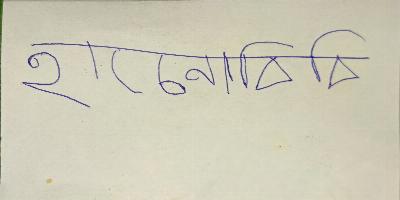 হাচেনাবিবি